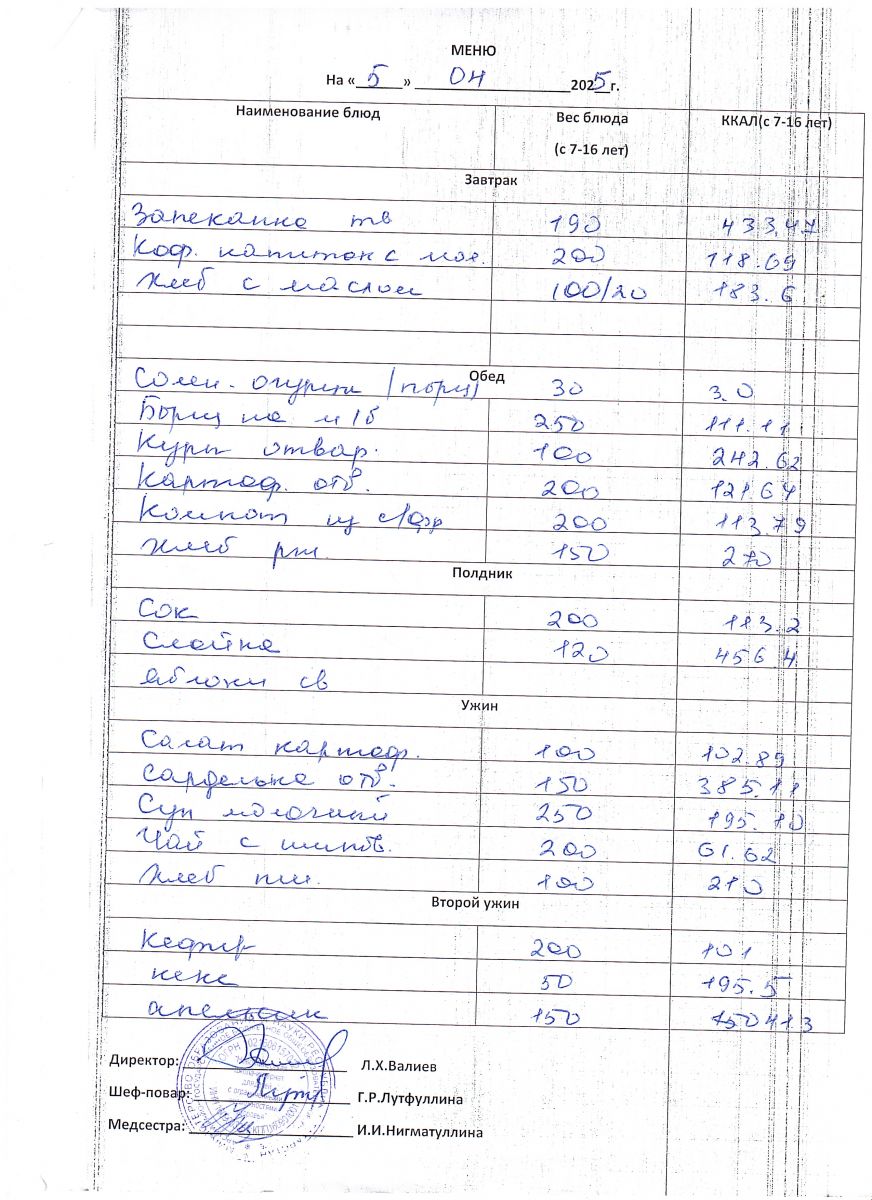 МЕНЮ
На « 5 » 04 2025 г.
Наименование блюд Вес блюда (с 7-16 лет) ККАЛ(с 7-16 лет)
Завтрак
Запеканка тв 190 433.47
Коф. напиток с мол. 200 118.69
Хлеб с маслом 100/20 183.6
Обед
Солен. огурцы (порц) 30 3.0
Борщ на м/б 250 111.11
Куры отвар. 100 242.62
Картоф. отв. 200 121.64
Компот из с/фр 200 113.79
Хлеб рж. 150 270
Полдник
Сок 200 113.2
Слойка 120 456.4
Яблоки св
Ужин
Салат картоф. 100 102.89
Сарделька отв. 150 385.11
Суп молочный 250 195.10
Чай с шипов. 200 61.62
Хлеб пш. 100 210
Второй ужин
Кефир 200 101
кекс 50 195.5
апельсин 150
Директор: Л.Х.Валиев
Шеф-повар: Г.Р.Лутфуллина
Медсестра: И.И.Нигматуллина